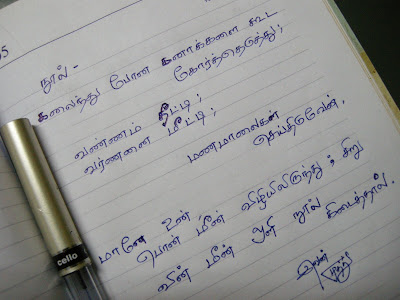 35
நூல் -
கலைந்து போன கனாக்களை கூட
கோர்த்தெடுத்து;
வண்ணம் தீட்டி;
வர்ணனை மீட்டி;
மணமாலைகள்
செய்திடுவேன்,
மானே உன்
பொன் மீன் விழியிலிருந்து; சிறு
வின் மீன் ஒளி நூல் கிடைத்தால்.
cello